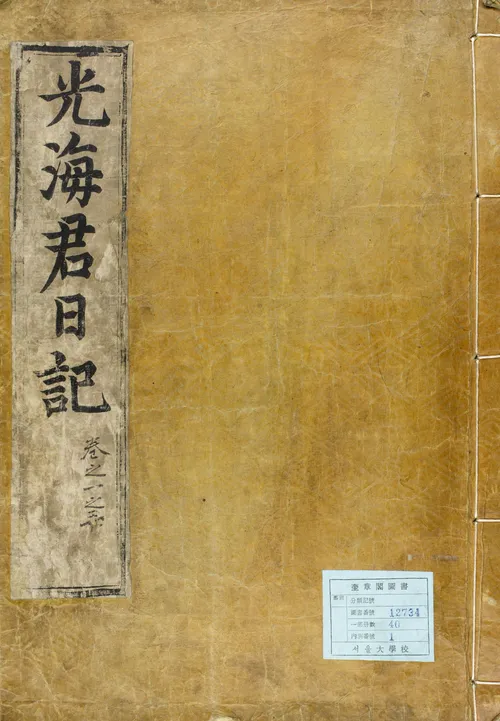 光海君日記
卷之一之五
奎章閣圖書
分類記號
圖書番號 12734
一部冊數 40
內冊番號 1
서울大學校